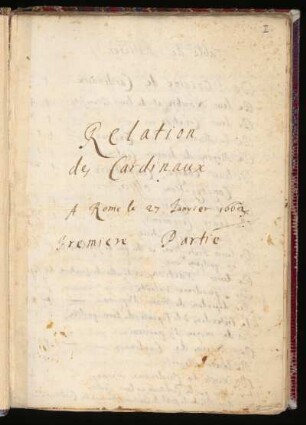 I
Relation
des Cardinaux
A Rome le 27 Janvier 1662
Premiere Partie